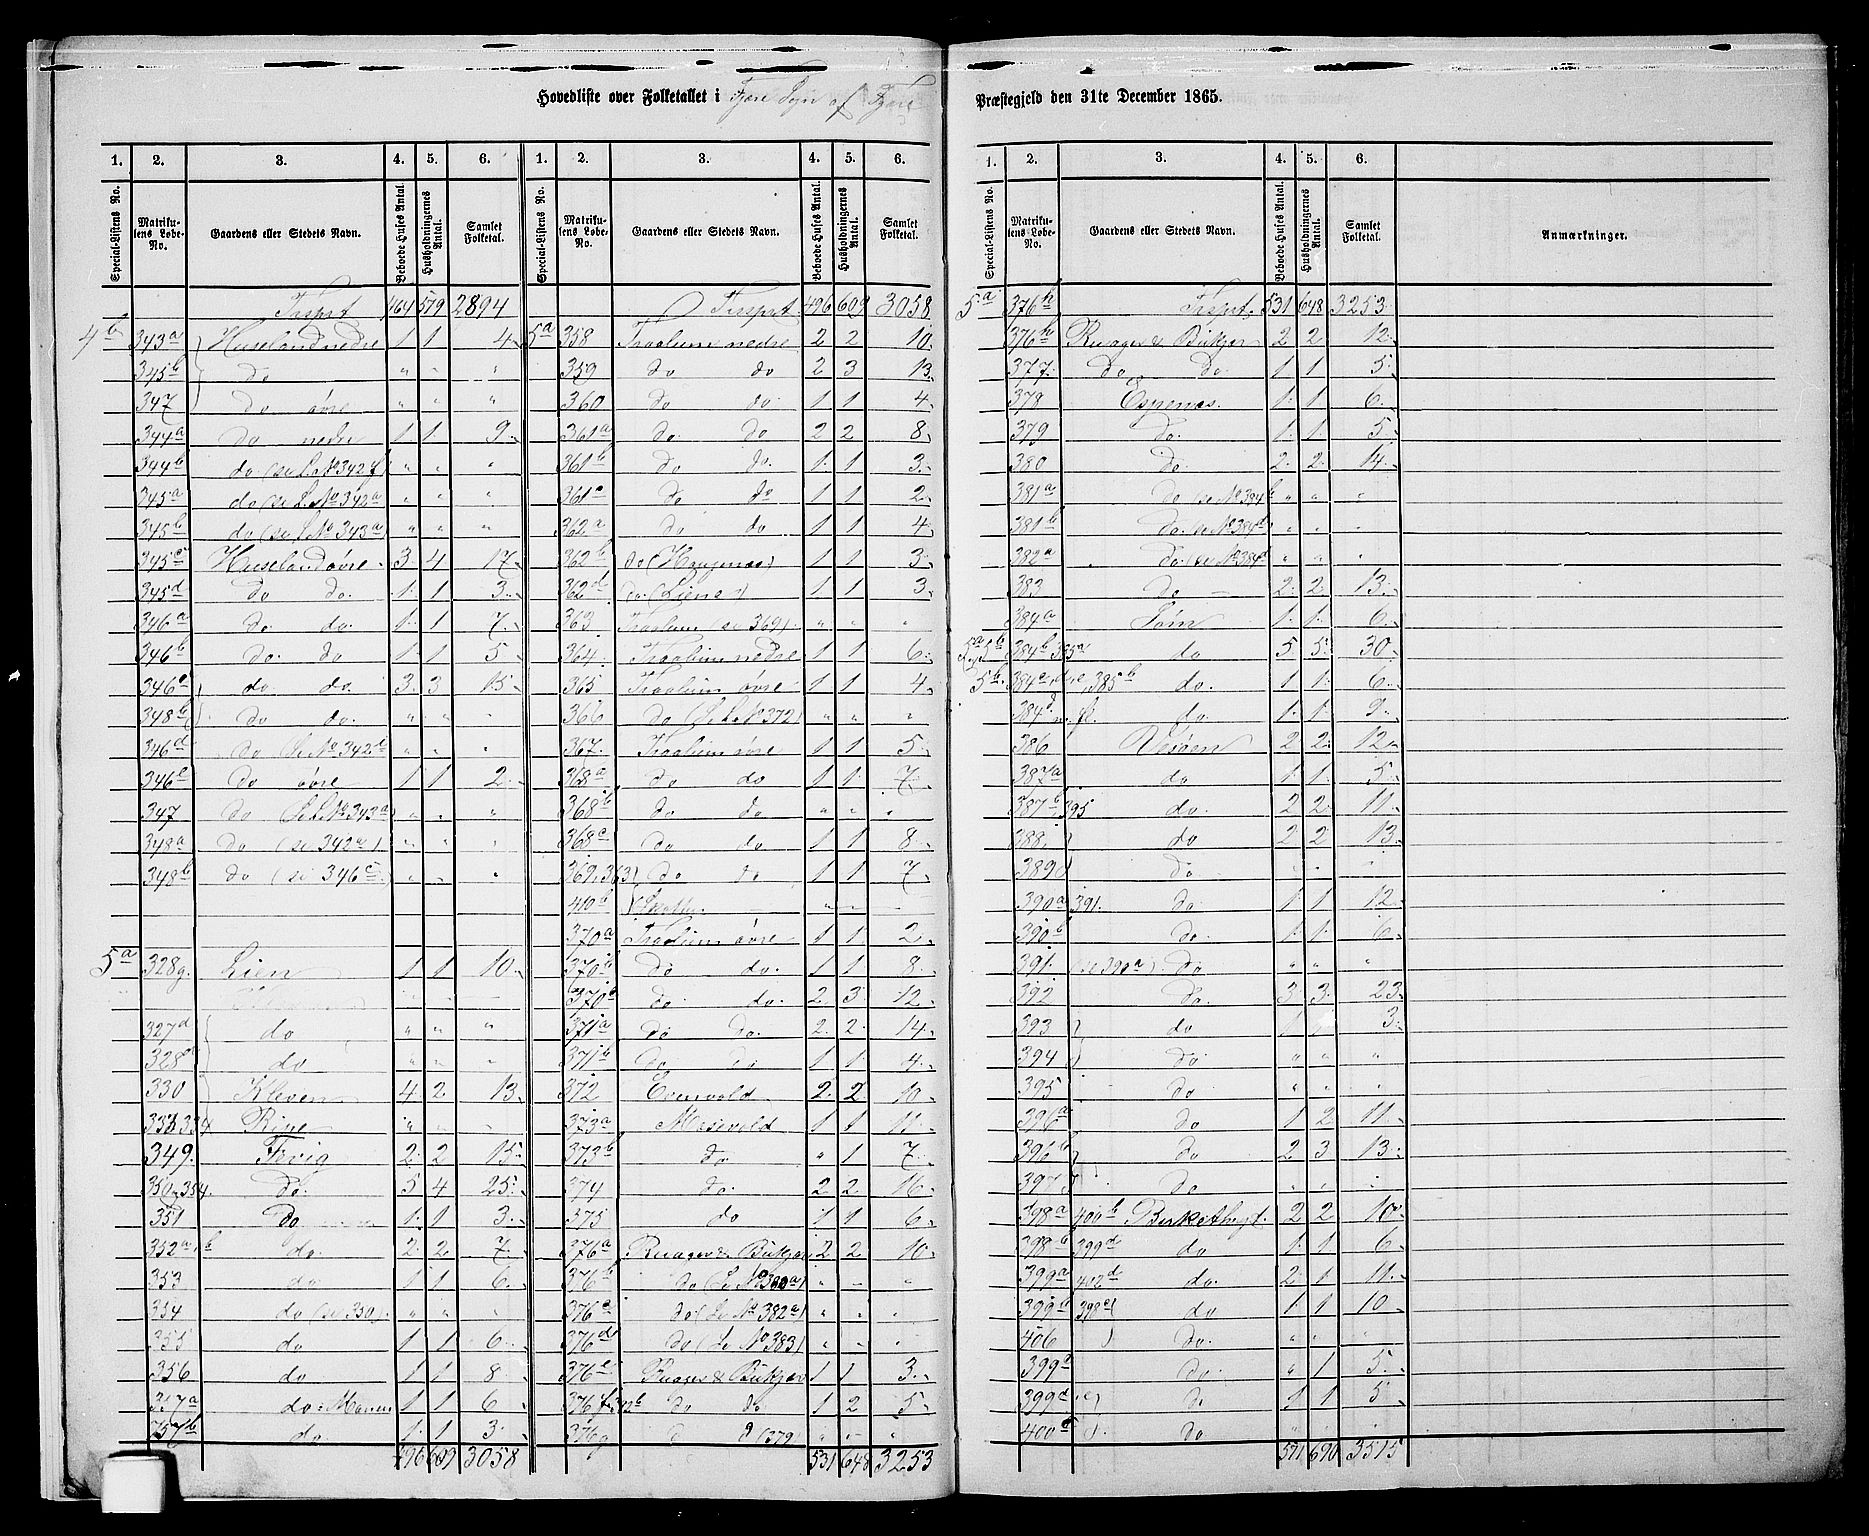 Hovedliste over Folketallet i Fjære Sogn af Fjære Præstegjeld den 31te December 1865.
1. 2. 3. 4. 5. 6. 1. 2. 3. 4. 5. 6.
Special-Listens No. Matrikulens Løbe-No. Gaardens eller Stedets Navn. Beboede Huses Antal. Husholdningernes Antal. Samlet Folketal. Special-Listens No. Matrikulens Løbe-No. Gaardens eller Stedets Navn. Beboede Huses Antal. Husholdningernes Antal. Samlet Folketal.
Trspt 464 579 2894
4b 343a Huseland nedre 1 1 4
345b do " " "
347 do øvre " " "
344a do nedre 1 1 9
344b do (se L.No 342f) " " "
345a do (se L.No 342a " " "
345b do (se L.No 343a) " " "
345c Huseland øvre 3 4 17
345d do do 1 1 3
346a do do 1 1 7
346b do do 1 1 5
346c do do 3 3 15
348b do do " " "
346d do (L. No 342e " " "
346e do øvre 1 1 2
347 do (L.No 343a) " " "
348a do (se 342a) " " "
348b do (se 346c) " " "
5a 328g Lien 1 1 10
327d do " " "
328 do " " "
330 Kleven 4 2 13
333 334 Rine " " "
349 Fevig 2 2 15
350, 354 do 5 4 25
351 do 1 1 3
352a, b do 2 2 7
353 do 1 1 6
354 do (se 350) " " "
355 do 1 1 6
356 do 1 1 8
357a do: Monen 1 1 6
357b do 1 1 3
496 609 3058
Trspt 496 609 3058
5a 358 Traalum nedre 2 2 10
359 do do 2 3 13
360 do do 1 1 4
361a do do 2 2 8
361b do do 1 1 3
361c do do 1 1 2
362a do do 1 1 4
362b do (Haugenæs) 1 1 3
362d do (Liene) 1 1 3
363 Traalum (se 369) " " "
364 Traalum nedre 1 1 6
365 Traalum øvre 1 1 4
366 do (Se L.No 372) " " "
367 Traalum øvre 1 1 5
368a do do 1 1 7
368b do do " " "
368c do do 1 1 8
369, 363 do do 1 1 7
410b
370a Traalum øvre 1 1 2
370b do do 1 1 8
370b do do 2 3 12
371a do do 2 2 14
371b do do 1 1 4
372 Evenvold 2 2 10
373a Mosevold 1 1 11
373b do " 1 7
374 do 2 2 16
375 do 1 1 6
376a Ruager & Bukjær 2 2 10
376b do (L. No 380a) " " "
376c do (L. No 382a) " " "
376d do (L. No 383) " " "
376e Ruager & Bukjær 1 1 3
376f do do 1 2 5
376g d d (379) " " "
531 648 3253
1. 2. 3. 4. 5. 6.
Special-Listens No. Matrikulens Løbe-No. Gaardens eller Stedets Navn. Beboede Huses Antal. Husholdningernes Antal. Samlet Folketal. Anmærkninger.
5a 376h Trspt. 531 648 3253
376h Ruager & Bukjær 2 2 12
377 do do 1 1 5
378 Espenæs 1 1 6
379 do 1 1 5
380 do 2 2 14
381a do (se No 384b " " "
381b do se No 384d " " "
382a do (se No 384d " " "
383 do 2 2 13
384a Søm 1 1 6
5a, 5b 384b, 385a do 5 5 30
5b 384c, d, e, 385b do 1 1 6
384 do 1 1 9
386 Vesøen 2 2 12
387a do 1 1 5
387b, 395 do 2 2 11
388 do 2 2 13
389 do " " "
390a 391 do 1 1 12
390b do 1 1 6
391 (se 390a) do " " "
392 do 3 3 23
393 do 1 1 3
394 do " " "
395 do " " "
396a do 1 2 11
396b do 2 3 13
397 do " " "
398a 406b Birkethvet 2 2 10
398b 399d do 1 1 6
399a 402d do 2 1 11
399b 398c do 1 1 10
406 do " " "
399c do " 1 5
399d do 1 1 5
400a do " "
571 690 3515